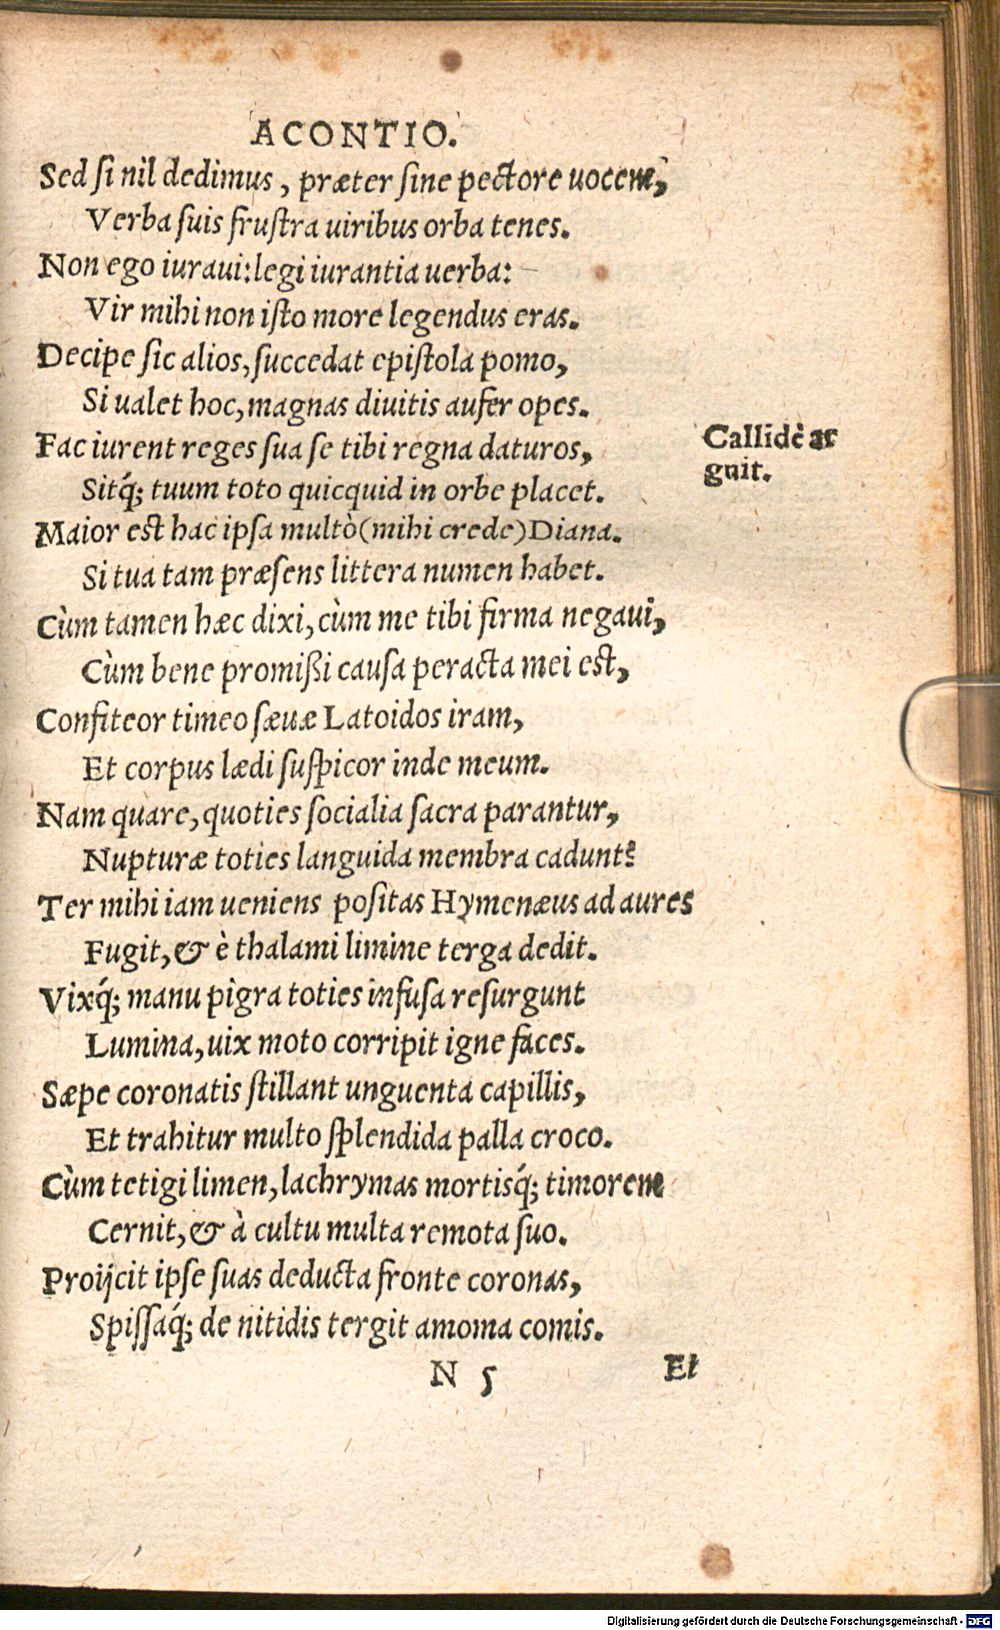 ACONTIO.
Sed si nil dedimus, præter sine pectore uocem,
Verba suis frustra uiribus orba tenes.
Non ego iuraui: legi iurantia uerba:
Vir mihi non isto more legendus eras.
Decipe sic alios, succedat epistola pomo,
Si ualet hoc, magnas diuitis aufer opes.
Fac iurent reges sua se tibi regna daturos,
Sitq́; tuum toto quicquid in orbe placet.
Callidè ar
guit.
Maior est hac ipsa multò (mihi crede) Diana.
Si tua tam præsens littera numen habet.
Cùm tamen hæc dixi, cùm me tibi firma negaui,
Cùm bene promißi causa peracta mei est,
Confiteor timeo sæuæ Latoidos iram,
Et corpus lædi suspicor inde meum.
Nam quare, quoties socialia sacra parantur,
Nupturæ toties languida membra cadunt?
Ter mihi iam ueniens positas Hymenæus ad aures
Fugit, & è thalami limine terga dedit.
Vixq́; manu pigra toties infusa resurgunt
Lumina, uix moto corripit igne faces.
Sæpe coronatis stillant unguenta capillis,
Et trahitur multo splendida palla croco.
Cùm tetigi limen, lachrymas mortisq́; timorem
Cernit, & à cultu multa remota suo.
Proijcit ipse suas deducta fronte coronas,
Spissaq́; de nitidis tergit amoma comis.
N 5
Et
Digitalisierung gefördert durch die Deutsche Forschungsgemeinschaft - DFG